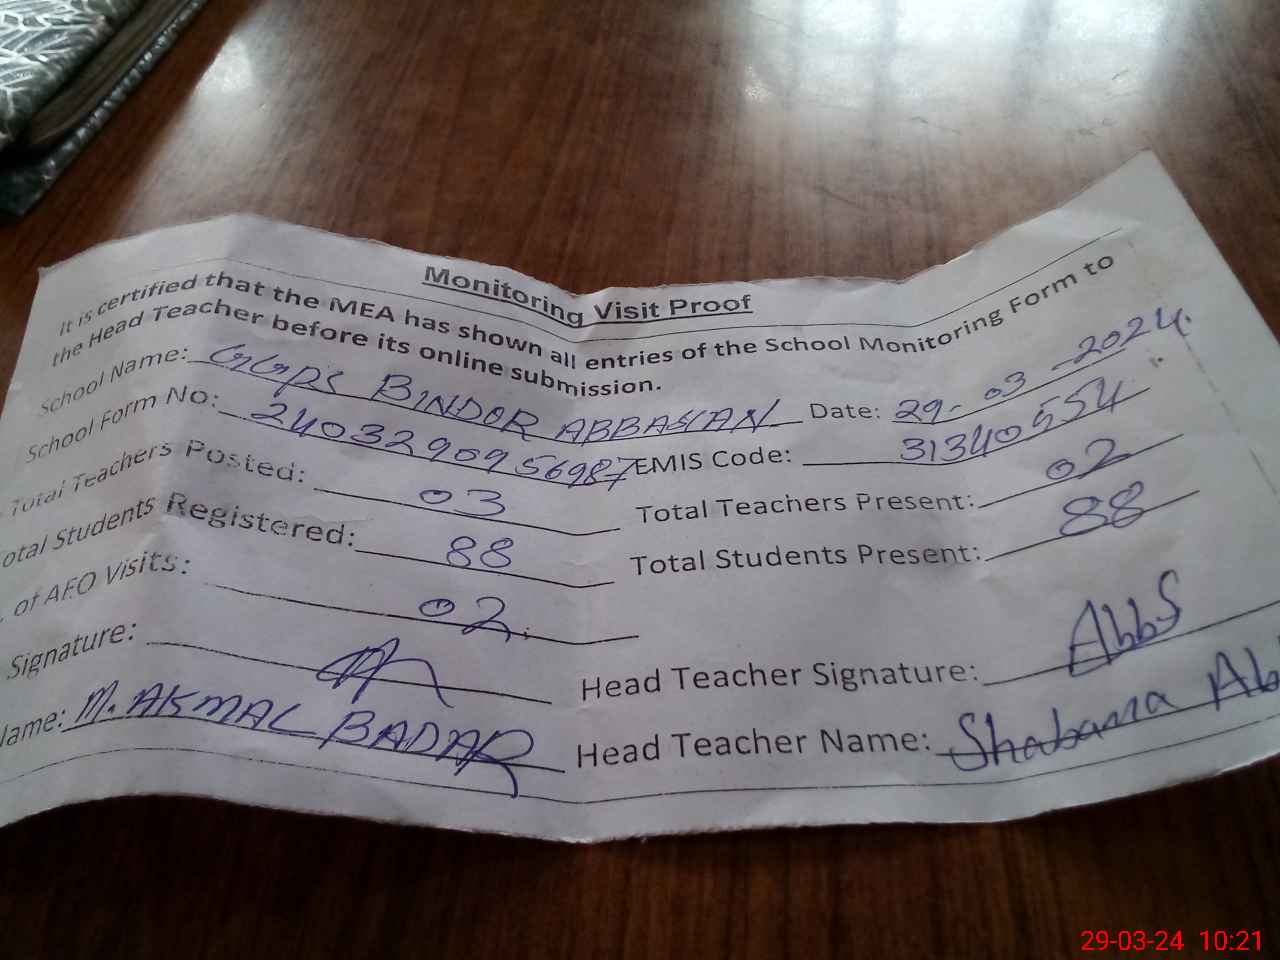 Monitoring Visit Proof
It is certified that the MEA has shown all entries of the School Monitoring Form to
the Head Teacher before its online submission.
School Name: GGPS BINDOR ABBASIAN Date: 29-03-2024.
School Form No: 2403290956987 EMIS Code: 31340554
Total Teachers Posted: 03 Total Teachers Present: 02
otal Students Registered: 88 Total Students Present: 88
. of AEO Visits: 02.
Signature: Head Teacher Signature: Abbs
Name: M. AKMAL BADAR Head Teacher Name: Shabana Ab
29-03-24 10:21